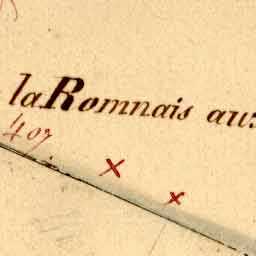 la Romnais aux
407